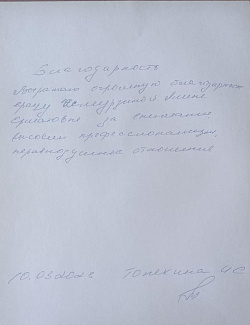 Благодарность
Выражаю огромную благодарность
врачу Алине
за внимание
высокий профессионализм,
неравнодушное отношение
10.03.202 Топехина ЧС